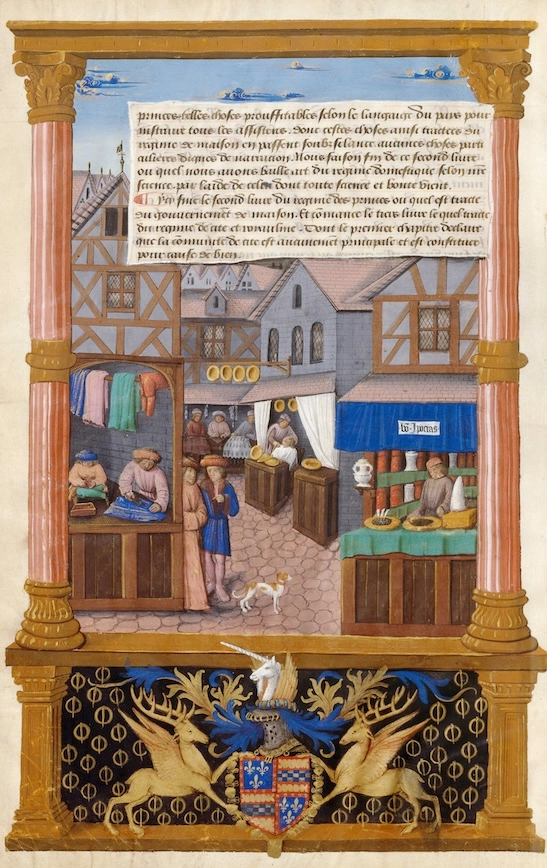 princes telles choses prouffitables selon le langaige du pays pour
instruire tous les assisteus. Donc cestes choses ainsi tractees du
regime de maison en passent soubz silance aucunes choses parti
culieres dignes de narration. Nous faison fin de ce second livre
ou quel nous avons baille art du regime domestique selon nre
science par laide de celui dont toute science et bonte vient.
Cy fine le second livre du regime des princes ou quel est tracte
du gouvernement de maison. Et comance le tiers livre le quel tracte
du regime de cite et royaulme. Dont le premier chapitre declaire
que la communite de cite est aucunement principale et est constituee
pour cause de bien.
bõ Ipocras